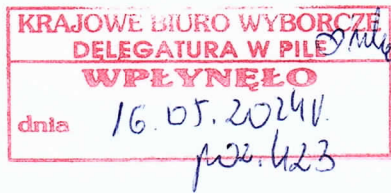 KRAJOWE BIURO WYBORCZE
DELEGATURA W PILE
WPŁYNĘŁO
dnia 16.05.2024r.
poz. 423